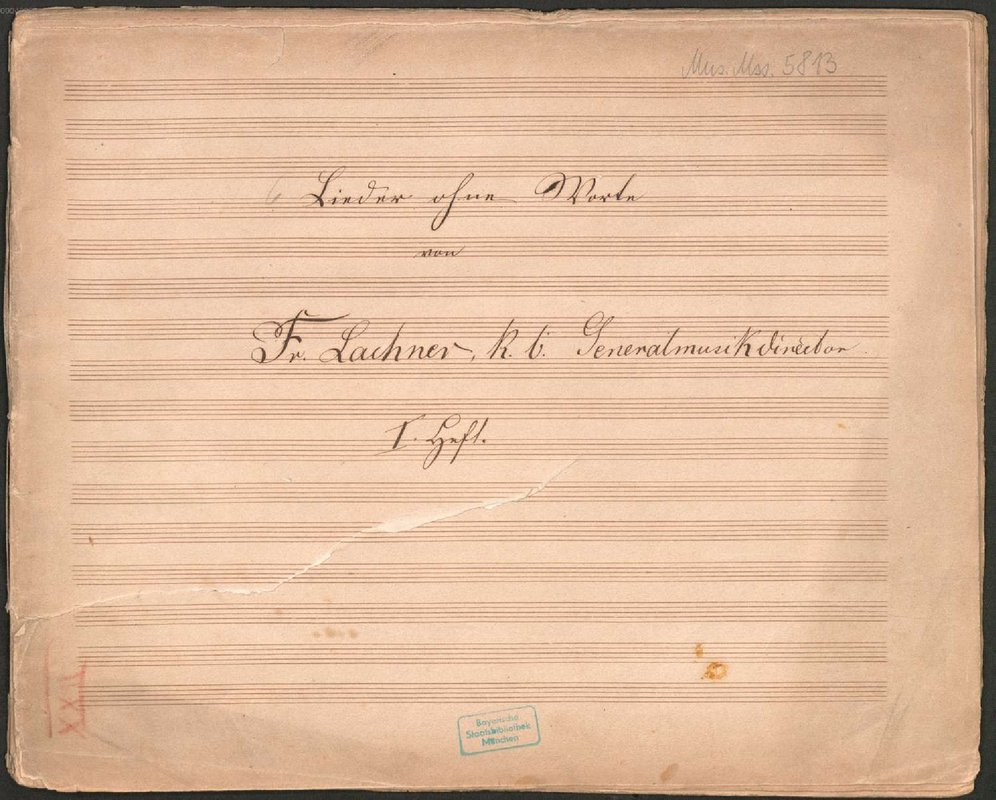 Mus. Mss. 5813
6 Lieder ohne Worte
von
Fr. Lachner, k. b. Generalmusikdirector
I. Heft.
XXII
Bayerische
Staatsbibliothek
München